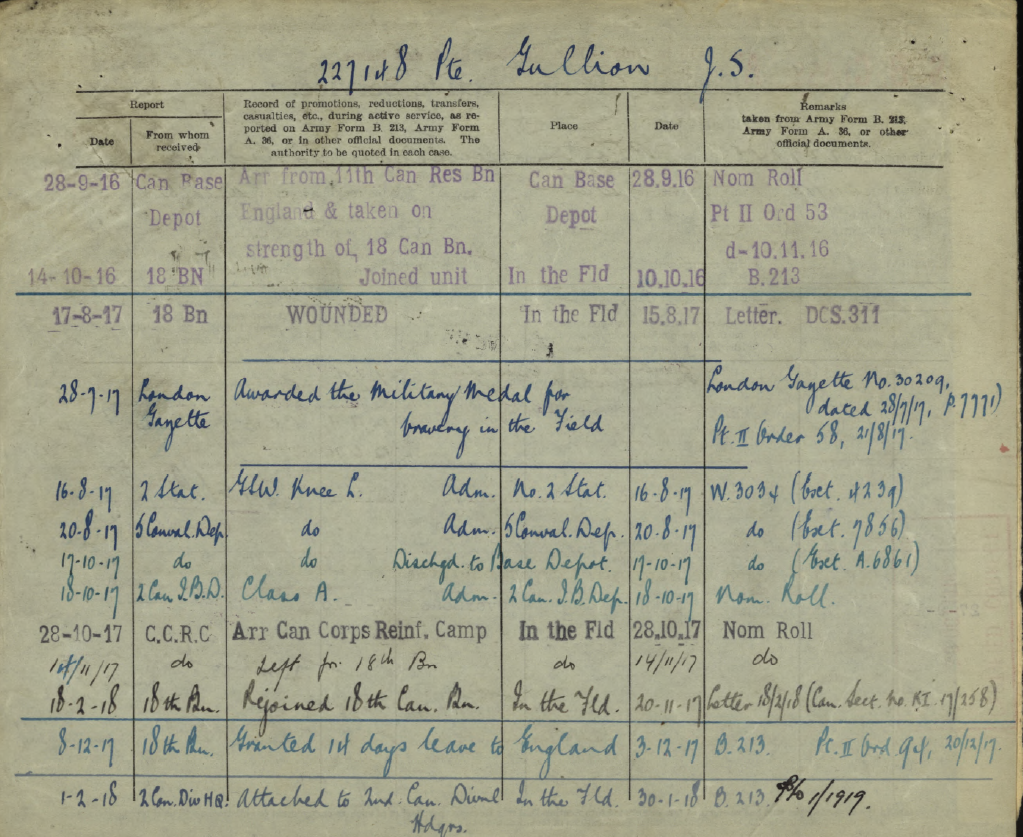 227148 Pte. Gullion J.S.
Report
Date
From whom received
Record of promotions, reductions, transfers, casualties, etc., during active service, as reported on Army Form B. 213, Army Form A. 36, or in other official documents. The authority to be quoted in each case.
Place
Date
Remarks taken from Army Form B. 213, Army Form A. 36, or other official documents.
28-9-16 Can Base Arr from 11th Can Res Bn Can Base 28.9.16 Nom Roll
Depot England & taken on Depot Pt II Ord 53
strength of, 18 Can Bn. d-10.11.16
14-10-16 18 BN Joined unit In the Fld 10.10.16 B.213
17-8-17 18 Bn WOUNDED In the Fld 15.8.17 Letter. DCS.311
28-7-17 London Awarded the Military Medal for London Gazette No. 30209,
Gazette bravery in the Field dated 28/7/17, P.7771)
Pt. II Order 58, 21/8/17.
16-8-17 2 Stat. GSW. Knee L. Adm. No. 2 Stat. 16-8-17 W.3034 (Esct. 4239)
20-8-17 5 Conval. Dep. do Adm. 5 Conval. Dep. 20-8-17 do (Esct. 7856)
17-10-17 do do Dischgd. to Base Depot. 17-10-17 do (Esct. A.6861)
18-10-17 2 Can I.B.D. Class A. Adm. 2 Can. I.B. Dep. 18-10-17 Nom. Roll.
28-10-17 C.C.R.C Arr Can Corps Reinf. Camp In the Fld 28.10.17 Nom Roll
14/11/17 do Left for 18th Bn do 14/11/17 do
18-2-18 18th Bn. Rejoined 18th Can. Bn. In the Fld. 20-11-17 Letter 18/2/18 (Can. Sect. No. KI. 17/258)
8-12-17 18th Bn. Granted 14 days leave to England 3-12-17 B.213. Pt. II Ord 94, 20/12/17.
1-2-18 2 Can. Div HQ. Attached to 2nd. Can. Divnl In the Fld. 30-1-18 B.213. 1/1919.
Hdqrs.